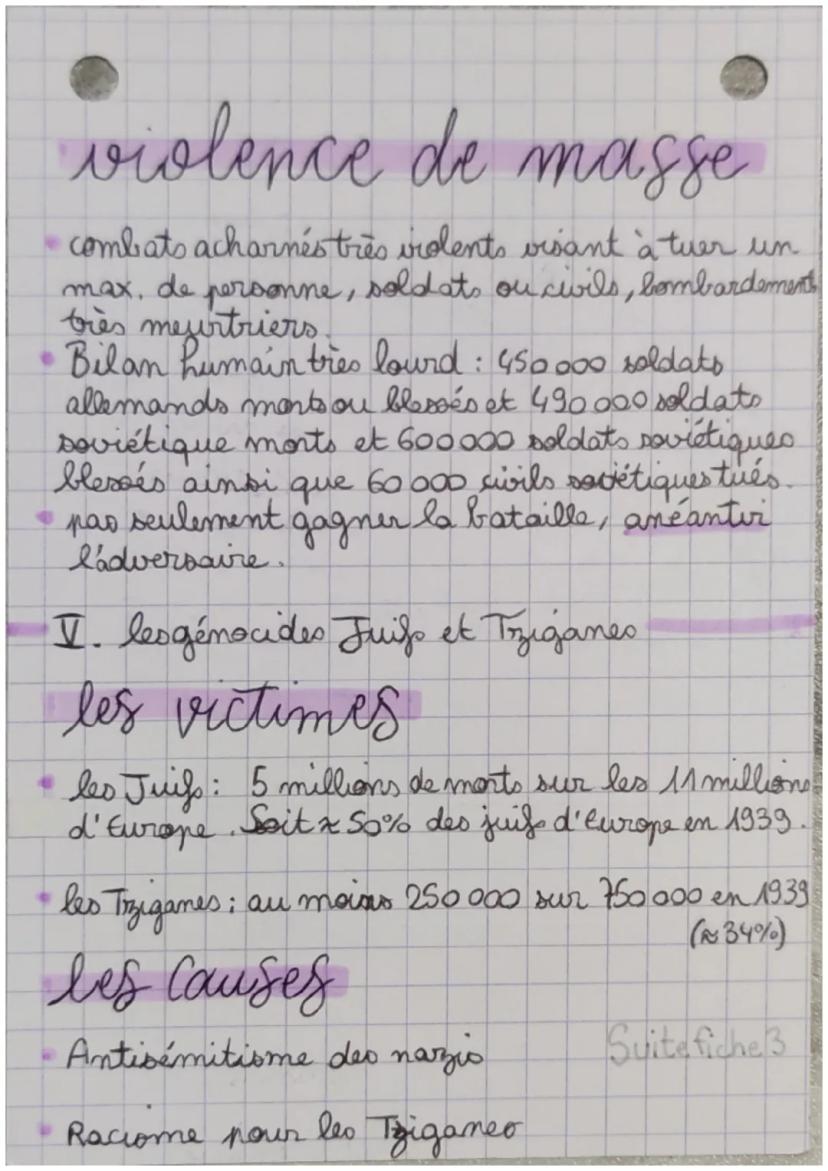 violence de masse
• combats acharnés très violents visant à tuer un
max. de personne, soldats ou civils, bombardements
très meurtriers.
• Bilan humain très lourd : 450 000 soldats
allemands morts ou blessés et 490 000 soldats
soviétique morts et 600 000 soldats soviétiques
blessés ainsi que 60 000 civils soviétiques tués.
• pas seulement gagner la bataille, anéantir
l'adversaire.
V. les génocides Juifs et Tziganes
les victimes
• les Juifs : 5 millions de morts sur les 11 millions
d'Europe. Soit ≈ 50% des juifs d'Europe en 1939.
• les Tziganes : au moins 250 000 sur 750 000 en 1939
(≈ 34%)
les causes
• Antisémitisme des nazis
Suite fiche 3
• Racisme pour les Tziganes